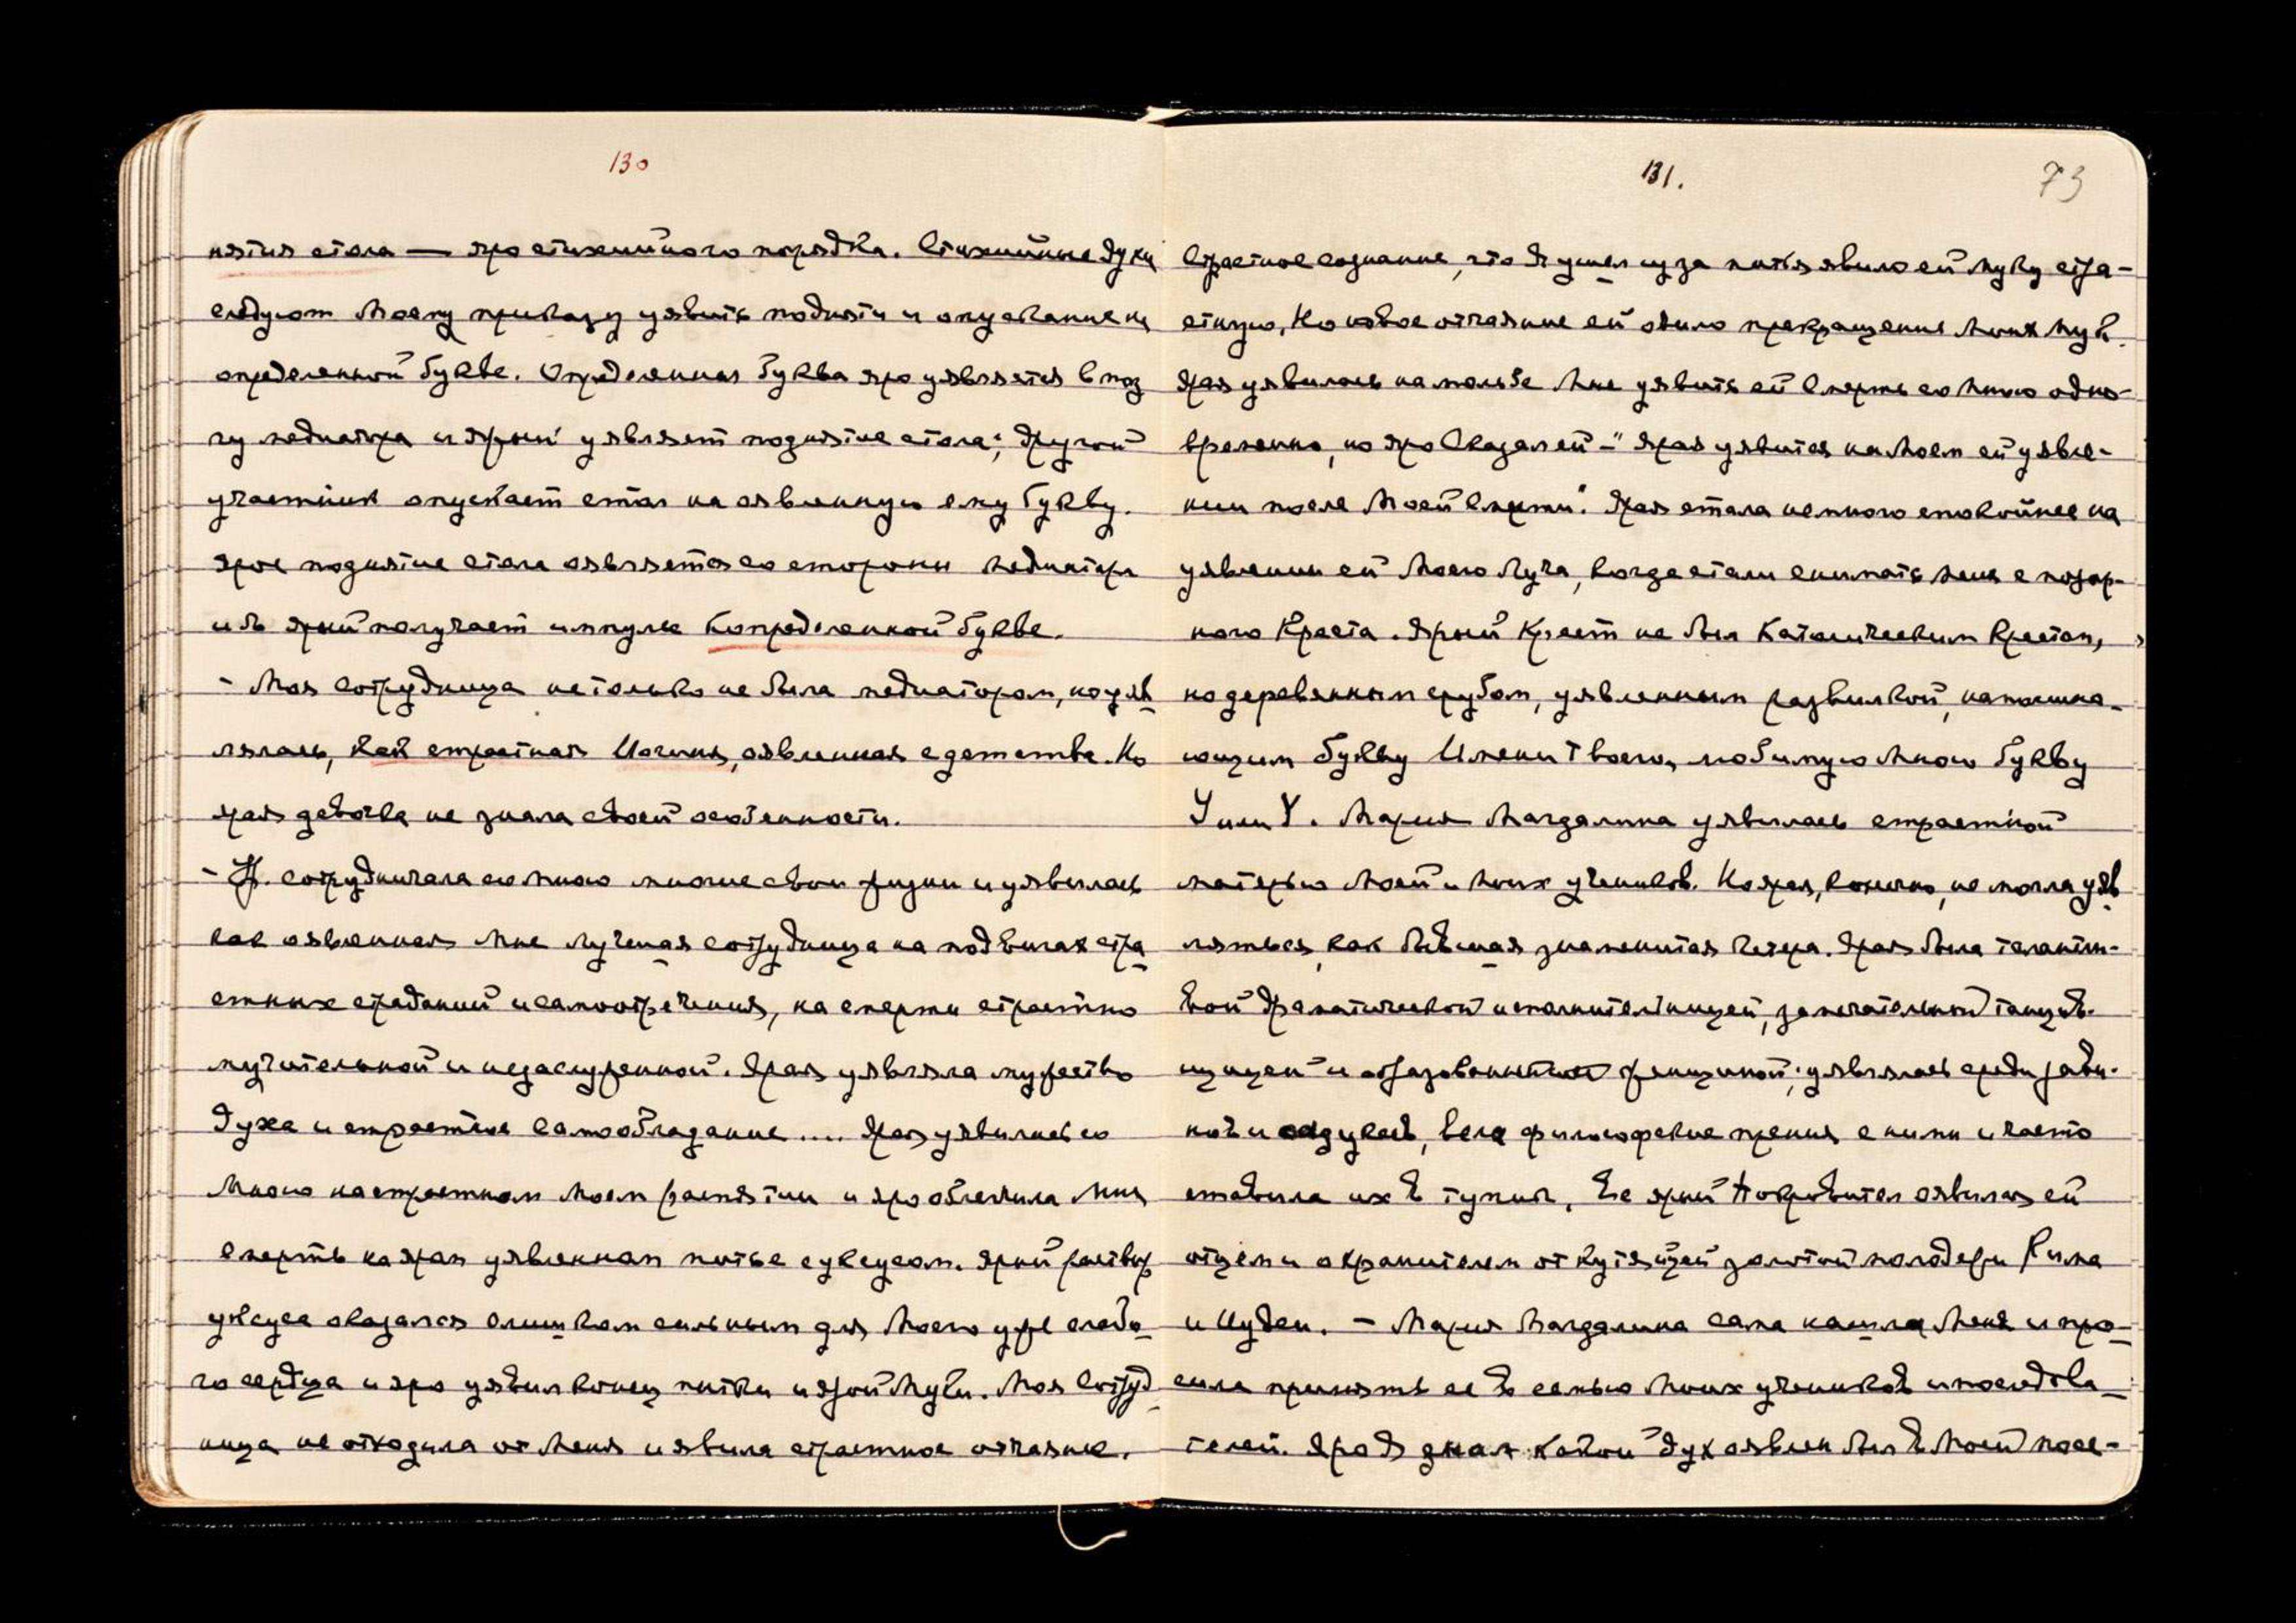 130
нятия стола — яро стихийного порядка. Стихийные духи
следуют Моему приказу уявить поднятие и опускание на
определенной букве. Определенная буква яро уявляется в моз
гу медиатора и ярый уявляет поднятие стола; другой
участник опускает стол на оявленную ему букву.
Ярое поднятие стола оявляется со стороны медиатора
и ярый получает импульс к определенной букве.
- Моя сотрудница не только не была медиатором, но уяв
лялась, как страстная Иогиня, оявленная с детства. Но
ярая девочка не знала своей особенности.
- Я. сотрудничала со мною многие свои жизни и уявилась
как оявленная Мне лучшая сотрудница на подвигах стра
стных страданий и самоотречения, на смерти страстно
мучительной и незаслуженной. Ярая уявляла мужество
духа и страстное самообладание .... Ярая уявилась со
Мною на страстном Моем распятии и яро облегчила Мне
смерть на яром уявленном питье с уксусом. Ярый раствор
уксуса оказался слишком сильным для Моего уже слабо
го сердца и яро уявил конец пытки и ярой Муки. Моя Сотруд
ница не отходила от Меня и явила страстное отчаяние.
131.
73
Страстное сознание, что Я ушел из за питья явило ей Муку стра-
стную, Но новое отчаяние ей явило прекращение Моих Мук.
Ярая уявилась на мольбе Мне уявить ей Смерть со Мною одно-
временно, но яро Сказал ей - "Ярая уявится на Моем ей уявле-
нии после Моей Смерти." Ярая стала немного спокойнее на
уявлении ей Моего Луча, когда стали снимать меня с позор-
ного Креста. Ярый Крест не был Католическим Крестом,
но деревянным срубом, уявленным развилкой, напомина-
ющим букву Имени Твоего, любимую Мною букву
У или Y. Мария Магдалина уявилась страстной
матерью Моей и Моих учеников. Но ярая, конечно, не могла уяв
ляться, как бывшая знаменитая Гетера. Ярая была талантли-
вой драматической исполнительницей, замечательной танцов-
щицей и образованной женщиной; уявлялась среди
и саддукеев, вела философские прения с ними и часто
ставила их в тупик. Ее ярый Покровитель оявился ей
отцем и охранителем от кутящей золотой молодежи Рима
и Иудеи. - Мария Магдалина сама нашла Меня и про-
сила принять ее в семью Моих учеников и последова-
телей. Яро Я знал какой дух оявлен был в Моей посе-